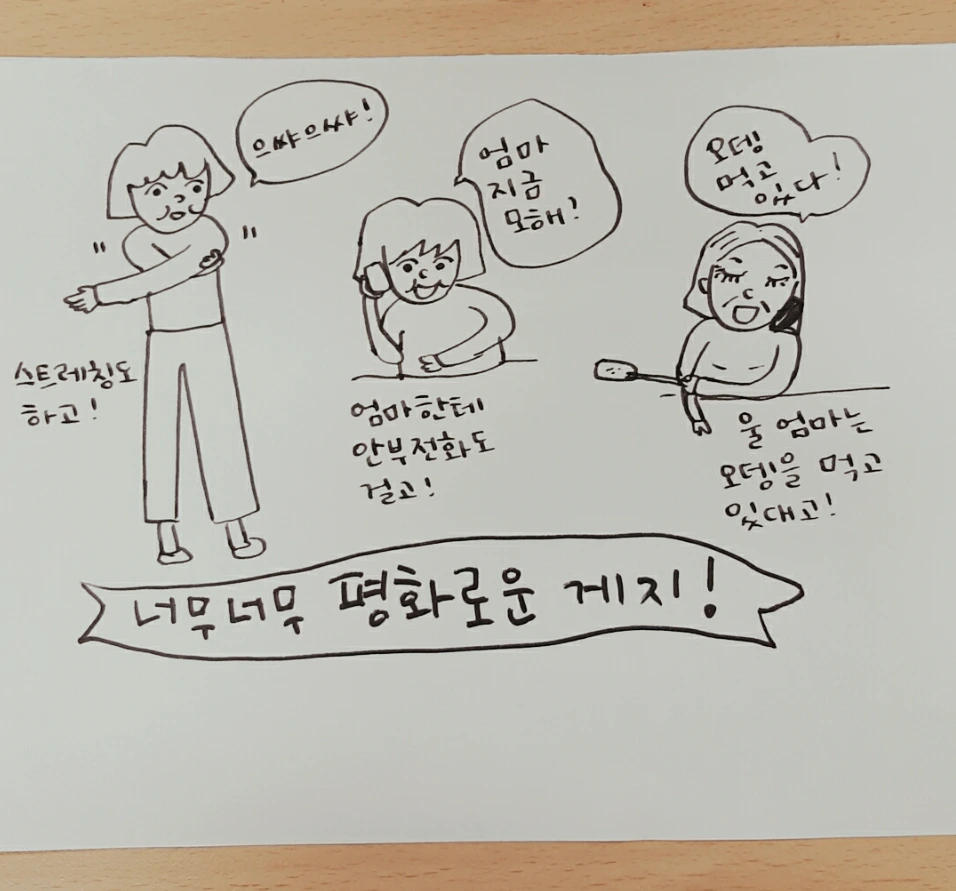 으쌰으쌰!
스트레칭도
하고!
엄마
지금
모해?
엄마한테
안부전화도
걸고!
오뎅
먹고
있다!
울 엄마는
오뎅을 먹고
있대고!
너무너무 평화로운 게지!